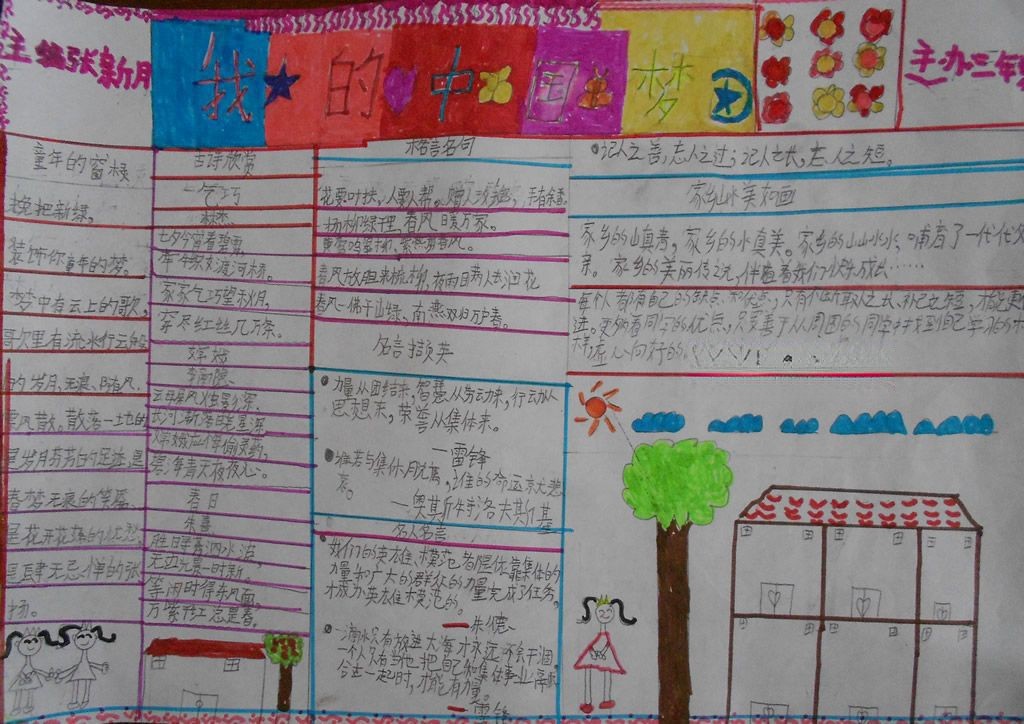 主编张新月
我的中国梦
主办三年
童年的窗棂
挽把新绿,
装饰你童年的梦。
梦中有云上的歌,
歌里有流水行云的
的岁月,无痕,随风,
散落一地的
是岁月芬芳的足迹,是
春梦无痕的
是花开花落的
是肆无忌惮的张
扬。
古诗欣赏
乞巧
林杰
七夕今宵看碧霄,
牵牛织女渡河桥。
家家乞巧望秋月,
穿尽红丝几万条。
嫦娥
李商隐
云母屏风烛影深,
长河渐落晓星沉。
嫦娥应悔偷灵药,
碧海青天夜夜心。
春日
朱熹
胜日寻芳泗水滨,
无边光景一时新。
等闲识得东风面,
万紫千红总是春。
格言名句
花要叶扶,人要人帮。赠人玫瑰,手有余香
杨柳绿千里,春风暖万家。
春风放胆来梳柳,夜雨瞒人去润花
春风一拂千山绿、南燕双归万户春。
名言撷英
●力量从团结来,智慧从劳动来,行动从
思想来,荣誉从集体来。
—雷锋
●谁若与集体脱离,谁的命运就要悲
哀。
—奥斯特洛夫斯基
名人名言
●我们的英雄、模范者层依靠集体的
力量和广大的群众的力量完成了任务,
才成为英雄模范的。
—朱德
●一滴水只有放进大海才永远不会干涸,
一个人只有当他把自己和集体事业融
合在一起时,才能有力量。
—雷锋
●记人之善,忘人之过;记人之长,忘人之短。
家乡山水美如画
家乡的山真秀,家乡的水真美。家乡的山山水水,哺育了一代代父
亲。家乡的美丽传说,伴随着我们快乐成长……
每个人都有自己的缺点和优点,只有个取人之长、补己之短,才能更
进。